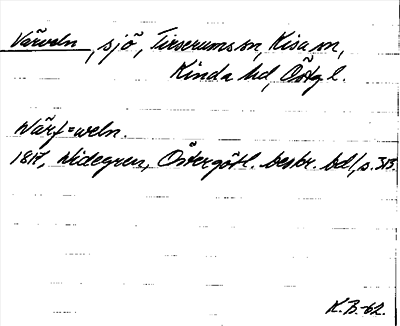 Värveln, sjö, Tirserums sn, Kisa sn,
Kinda hd, Östg l.
Wärf=weln.
1817, Widegren, Östergötl. beskr. bd 1, s. 313.
K.B.-62.